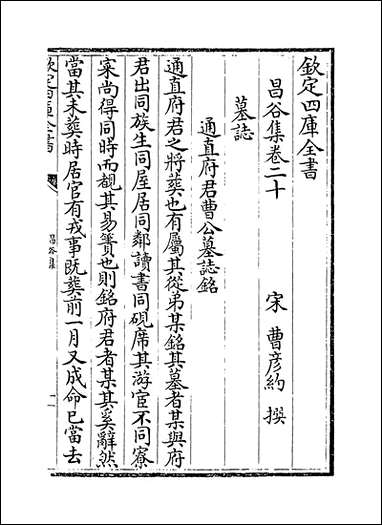 欽定四庫全書
昌谷集卷二十
宋 曹彦約 撰
墓誌
通直府君曹公墓誌銘
通直府君之將葬也有屬其從弟某銘其墓者某與府
君出同族生同屋居同鄰讀書同硯席其游宦不同寮
寀尚得同時而覩其易簀也則銘府君者某其奚辭然
當其未葬時居官有戎事既葬前一月又成命已當去
欽定四庫全書
昌谷集